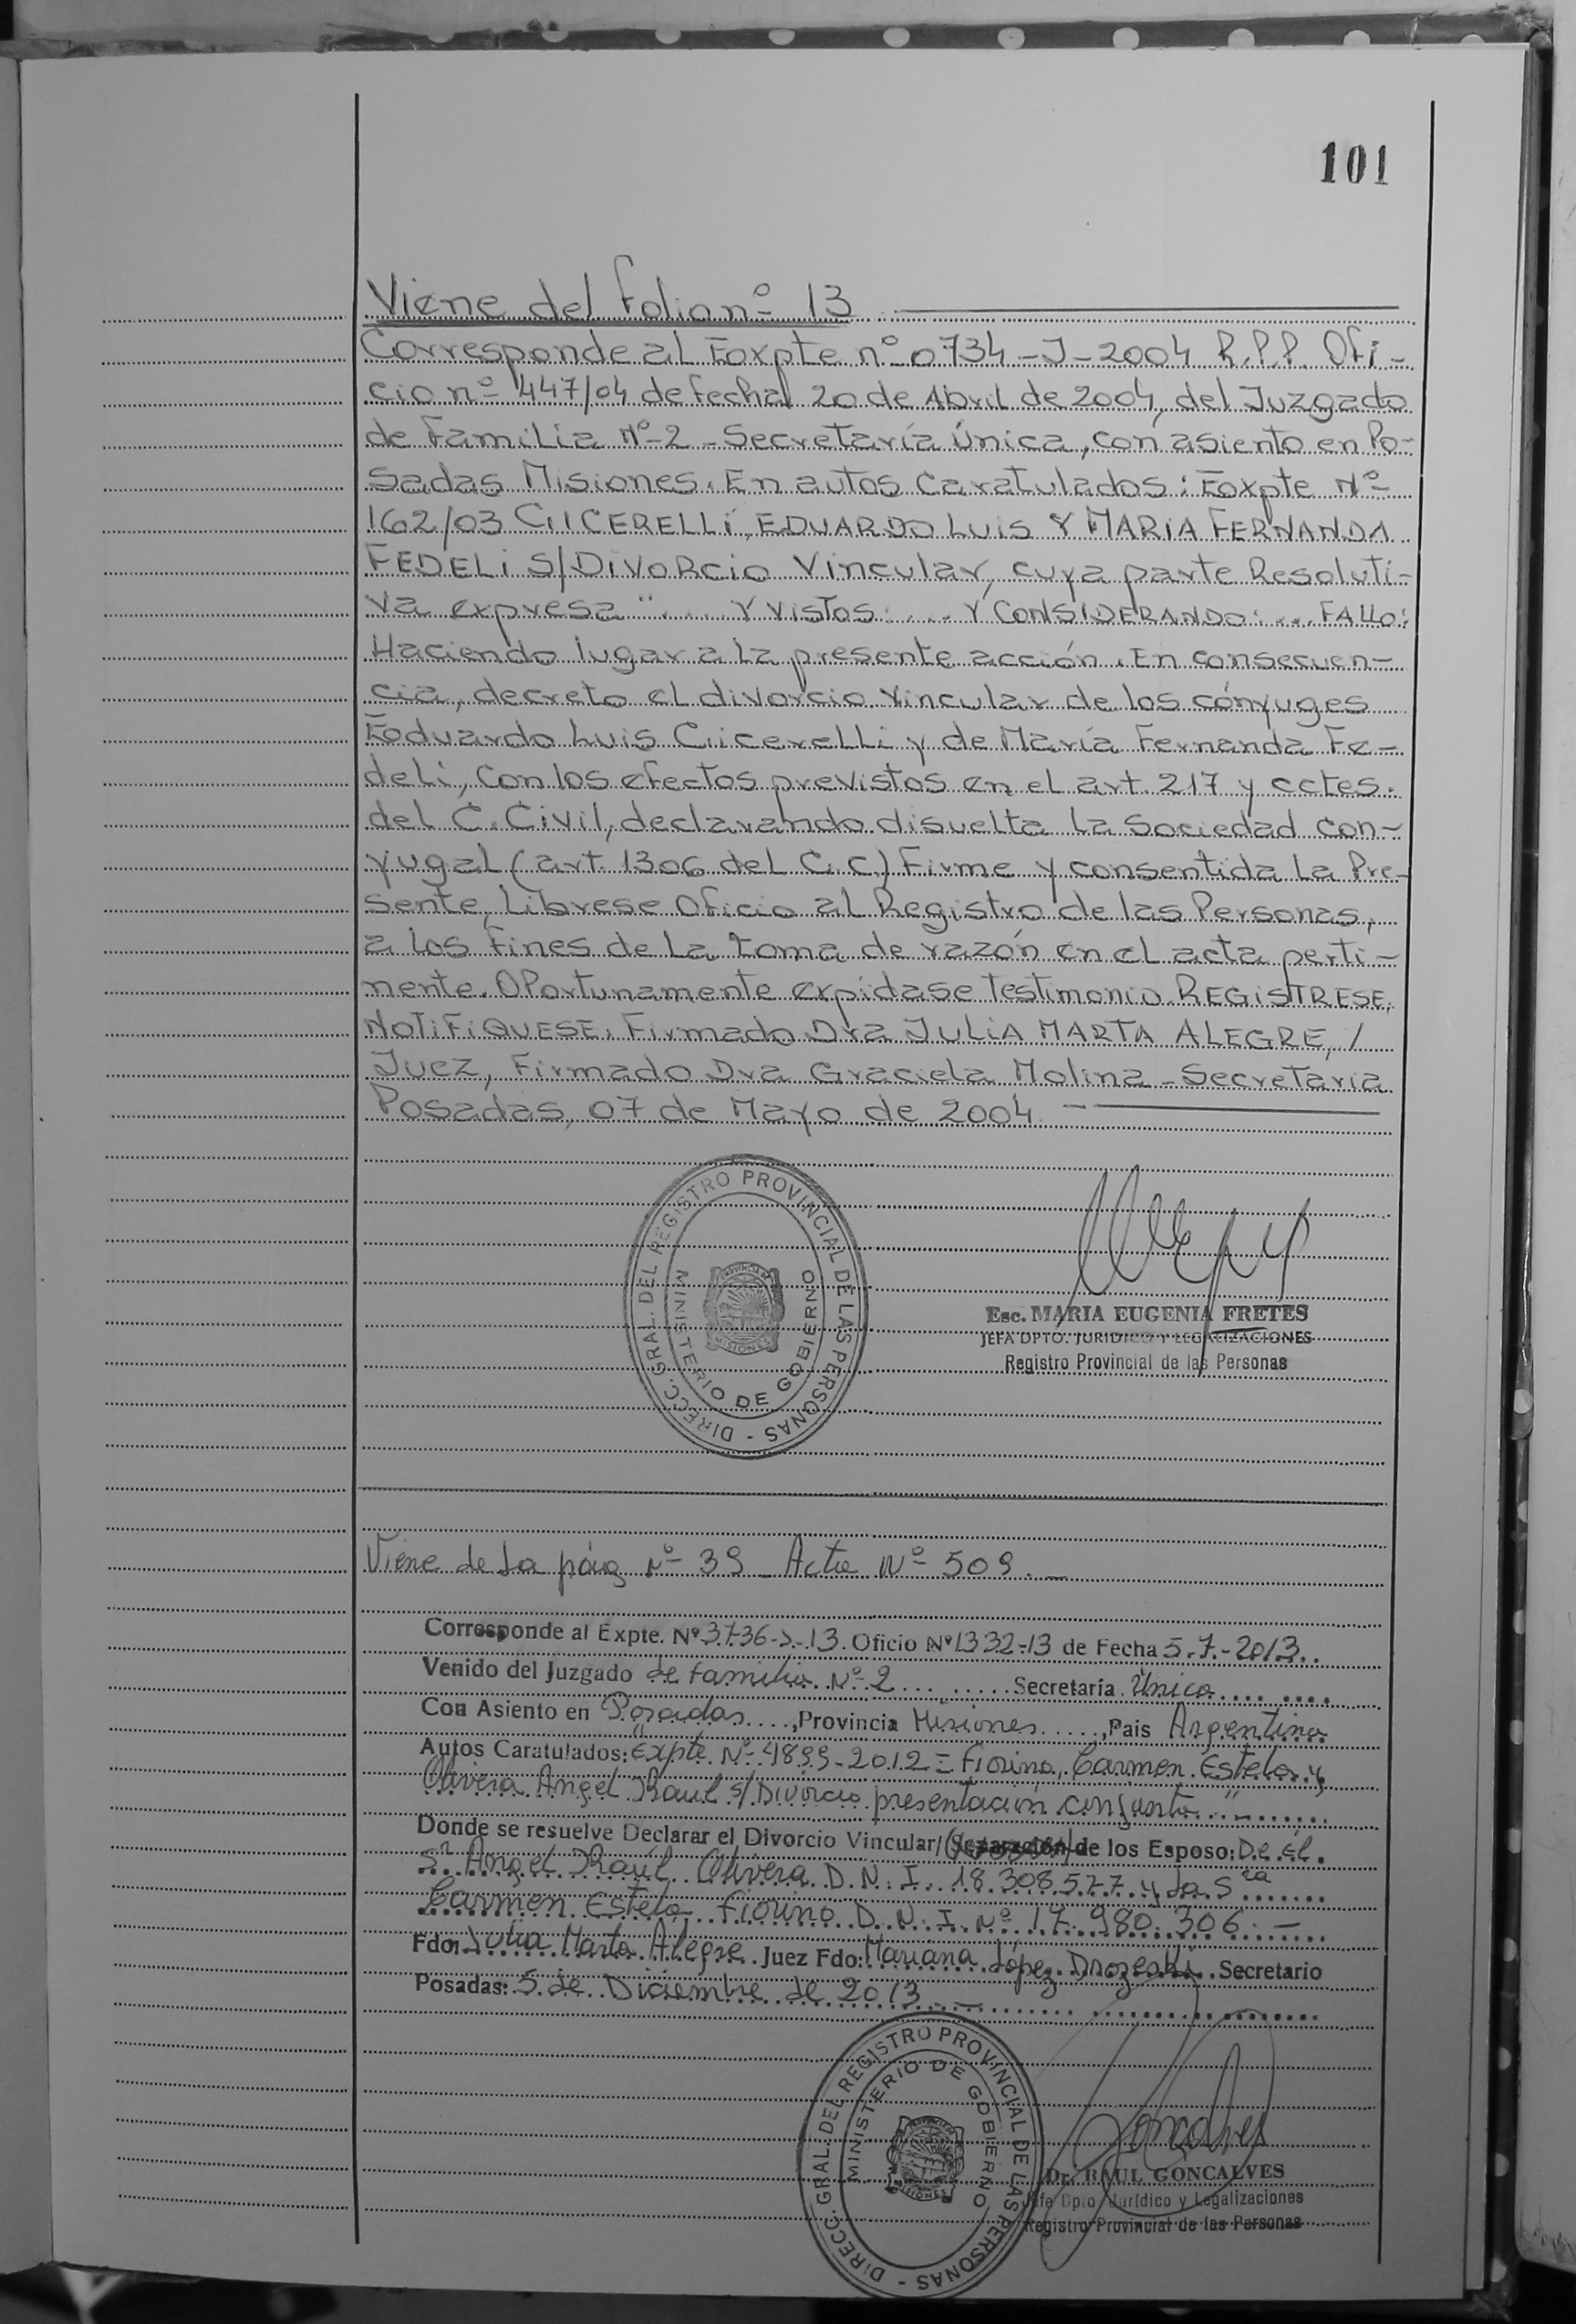 101
Viene del Folio nº 13
Corresponde al Expte nº 0734-J-2004 R.P.P. Ofi-
cio nº 447/04 de fecha 20 de Abril de 2004, del Juzgado
de Familia Nº 2 - Secretaría Única, con asiento en Po-
sadas Misiones. En autos caratulados: Expte Nº
162/03 CICERELLI, EDUARDO LUIS Y MARIA FERNANDA
FEDELI S/DIVORCIO Vincular, cuya parte Resoluti-
va expresa "..... Y VISTOS: .... Y CONSIDERANDO: .... FALLO:
Haciendo lugar a la presente acción. En consecuen-
cia, decreto el divorcio vincular de los cónyuges
Eduardo Luis Cicerelli y de María Fernanda Fe-
deli, con los efectos previstos en el art. 217 y cctes.
del C. Civil, declarando disuelta la Sociedad con-
yugal (art. 1306 del C.C.) Firme y consentida la Pre-
sente, Líbrese Oficio al Registro de las Personas,
a los fines de la toma de razón en el acta perti-
nente. Oportunamente expidase testimonio. REGISTRESE,
NOTIFIQUESE. Firmado Dra JULIA MARTA ALEGRE, /
Juez, Firmado Dra Graciela Molina - Secretaria
Posadas, 07 de Mayo de 2004
DIRECC. GRAL. DEL REGISTRO PROVINCIAL DE LAS PERSONAS -
MINISTERIO DE GOBIERNO
PROVINCIA DE
MISIONES
Esc. MARIA EUGENIA FRETES
JEFA DPTO. JURIDICO Y LEGALIZACIONES
Registro Provincial de las Personas
Viene de la pág Nº 39 - Acta Nº 509. -
Corresponde al Expte. Nº 3736-J-13. Oficio Nº 1332-13 de Fecha 5-7-2013..
Venido del Juzgado de familia Nº 2 ... ..... Secretaría Única..... ....
Con Asiento en Posadas ....,Provincia Misiones.....,Pais Argentina
Autos Caratulados: "Expte. Nº 4899-2012 = Fiorino, Carmen Estela y
Olivera Angel Raul s/ Divorcio presentación conjunta..."
Donde se resuelve Declarar el Divorcio Vincular/(Separación) de los Esposo: De él.
Sr Angel Raúl Olivera D.N.I. 18.308.577 y la Sra
Carmen Estela Fiorino D.N.I. Nº 17.980.306. -
Fdo: Julia Marta Alegre. Juez Fdo: Mariana López Drozeski. Secretario
Posadas: 5 de Diciembre de 2013 -
DIRECC. GRAL. DEL REGISTRO PROVINCIAL DE LAS PERSONAS -
MINISTERIO DE GOBIERNO
PROVINCIA DE
MISIONES
Goncalves
Dr. RAUL GONCALVES
Jefe Dpto. Jurídico y Legalizaciones
Registro Provincial de las Personas